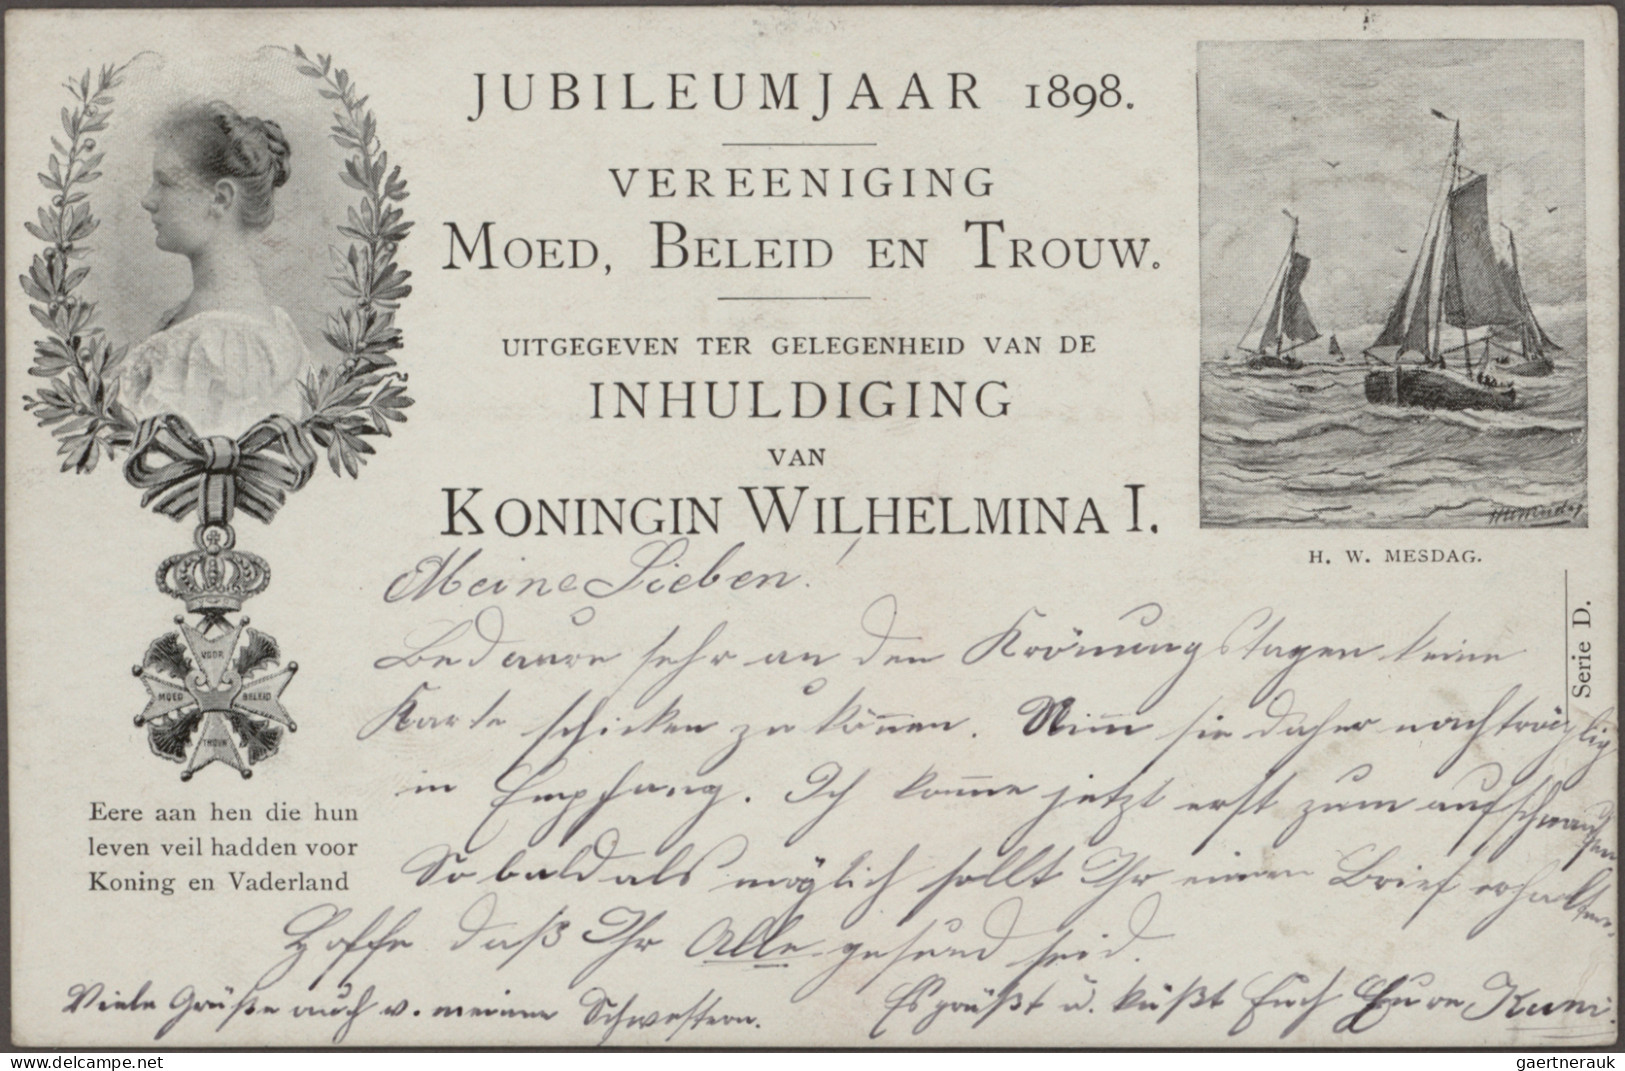 JUBILEUMJAAR 1898.
VEREENIGING
MOED, BELEID EN TROUW.
UITGEGEVEN TER GELEGENHEID VAN DE
INHULDIGING
VAN
KONINGIN WILHELMINA I.
H. W. MESDAG.
Serie D.
VOOR
MOED BELEID
TROUW
Eere aan hen die hun
leven veil hadden voor
Koning en Vaderland
Meine Lieben!
Bedaure sehr an den Krönungstagen keine
Karte schicken zu können. Nimm sie daher nachträglich
in Empfang. Ich komme jetzt erst zum aufschnaufen
Sobald als möglich sollt Ihr einen Brief erhalten.
Hoffe daß Ihr Alle gesund seid.
Viele Grüße auch v. meinen Schwestern.
Es grüßt u. küßt Euch Eure
delcampe.net
gaertnerauk